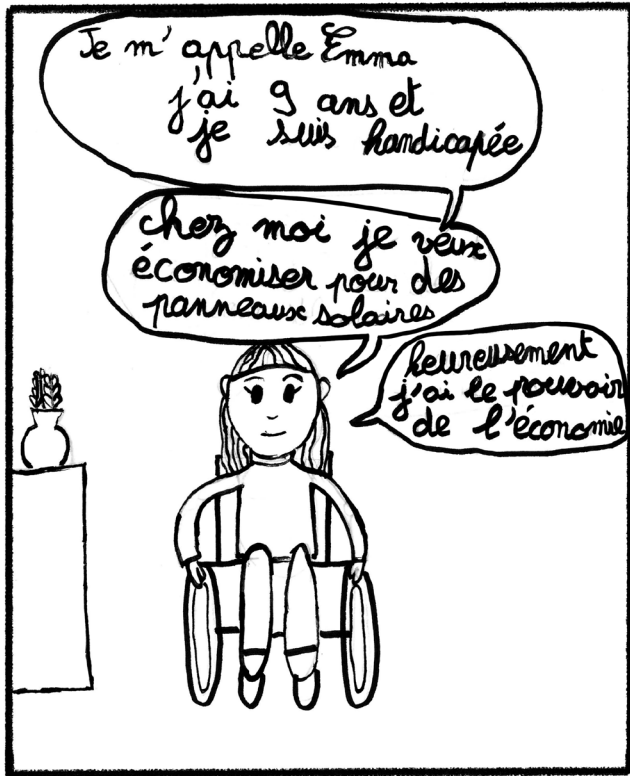 Je m'appelle Emma
j'ai 9 ans et
je suis handicapée
chez moi je veux
économiser pour des
panneaux solaires
heureusement
j'ai le pouvoir
de l'économie